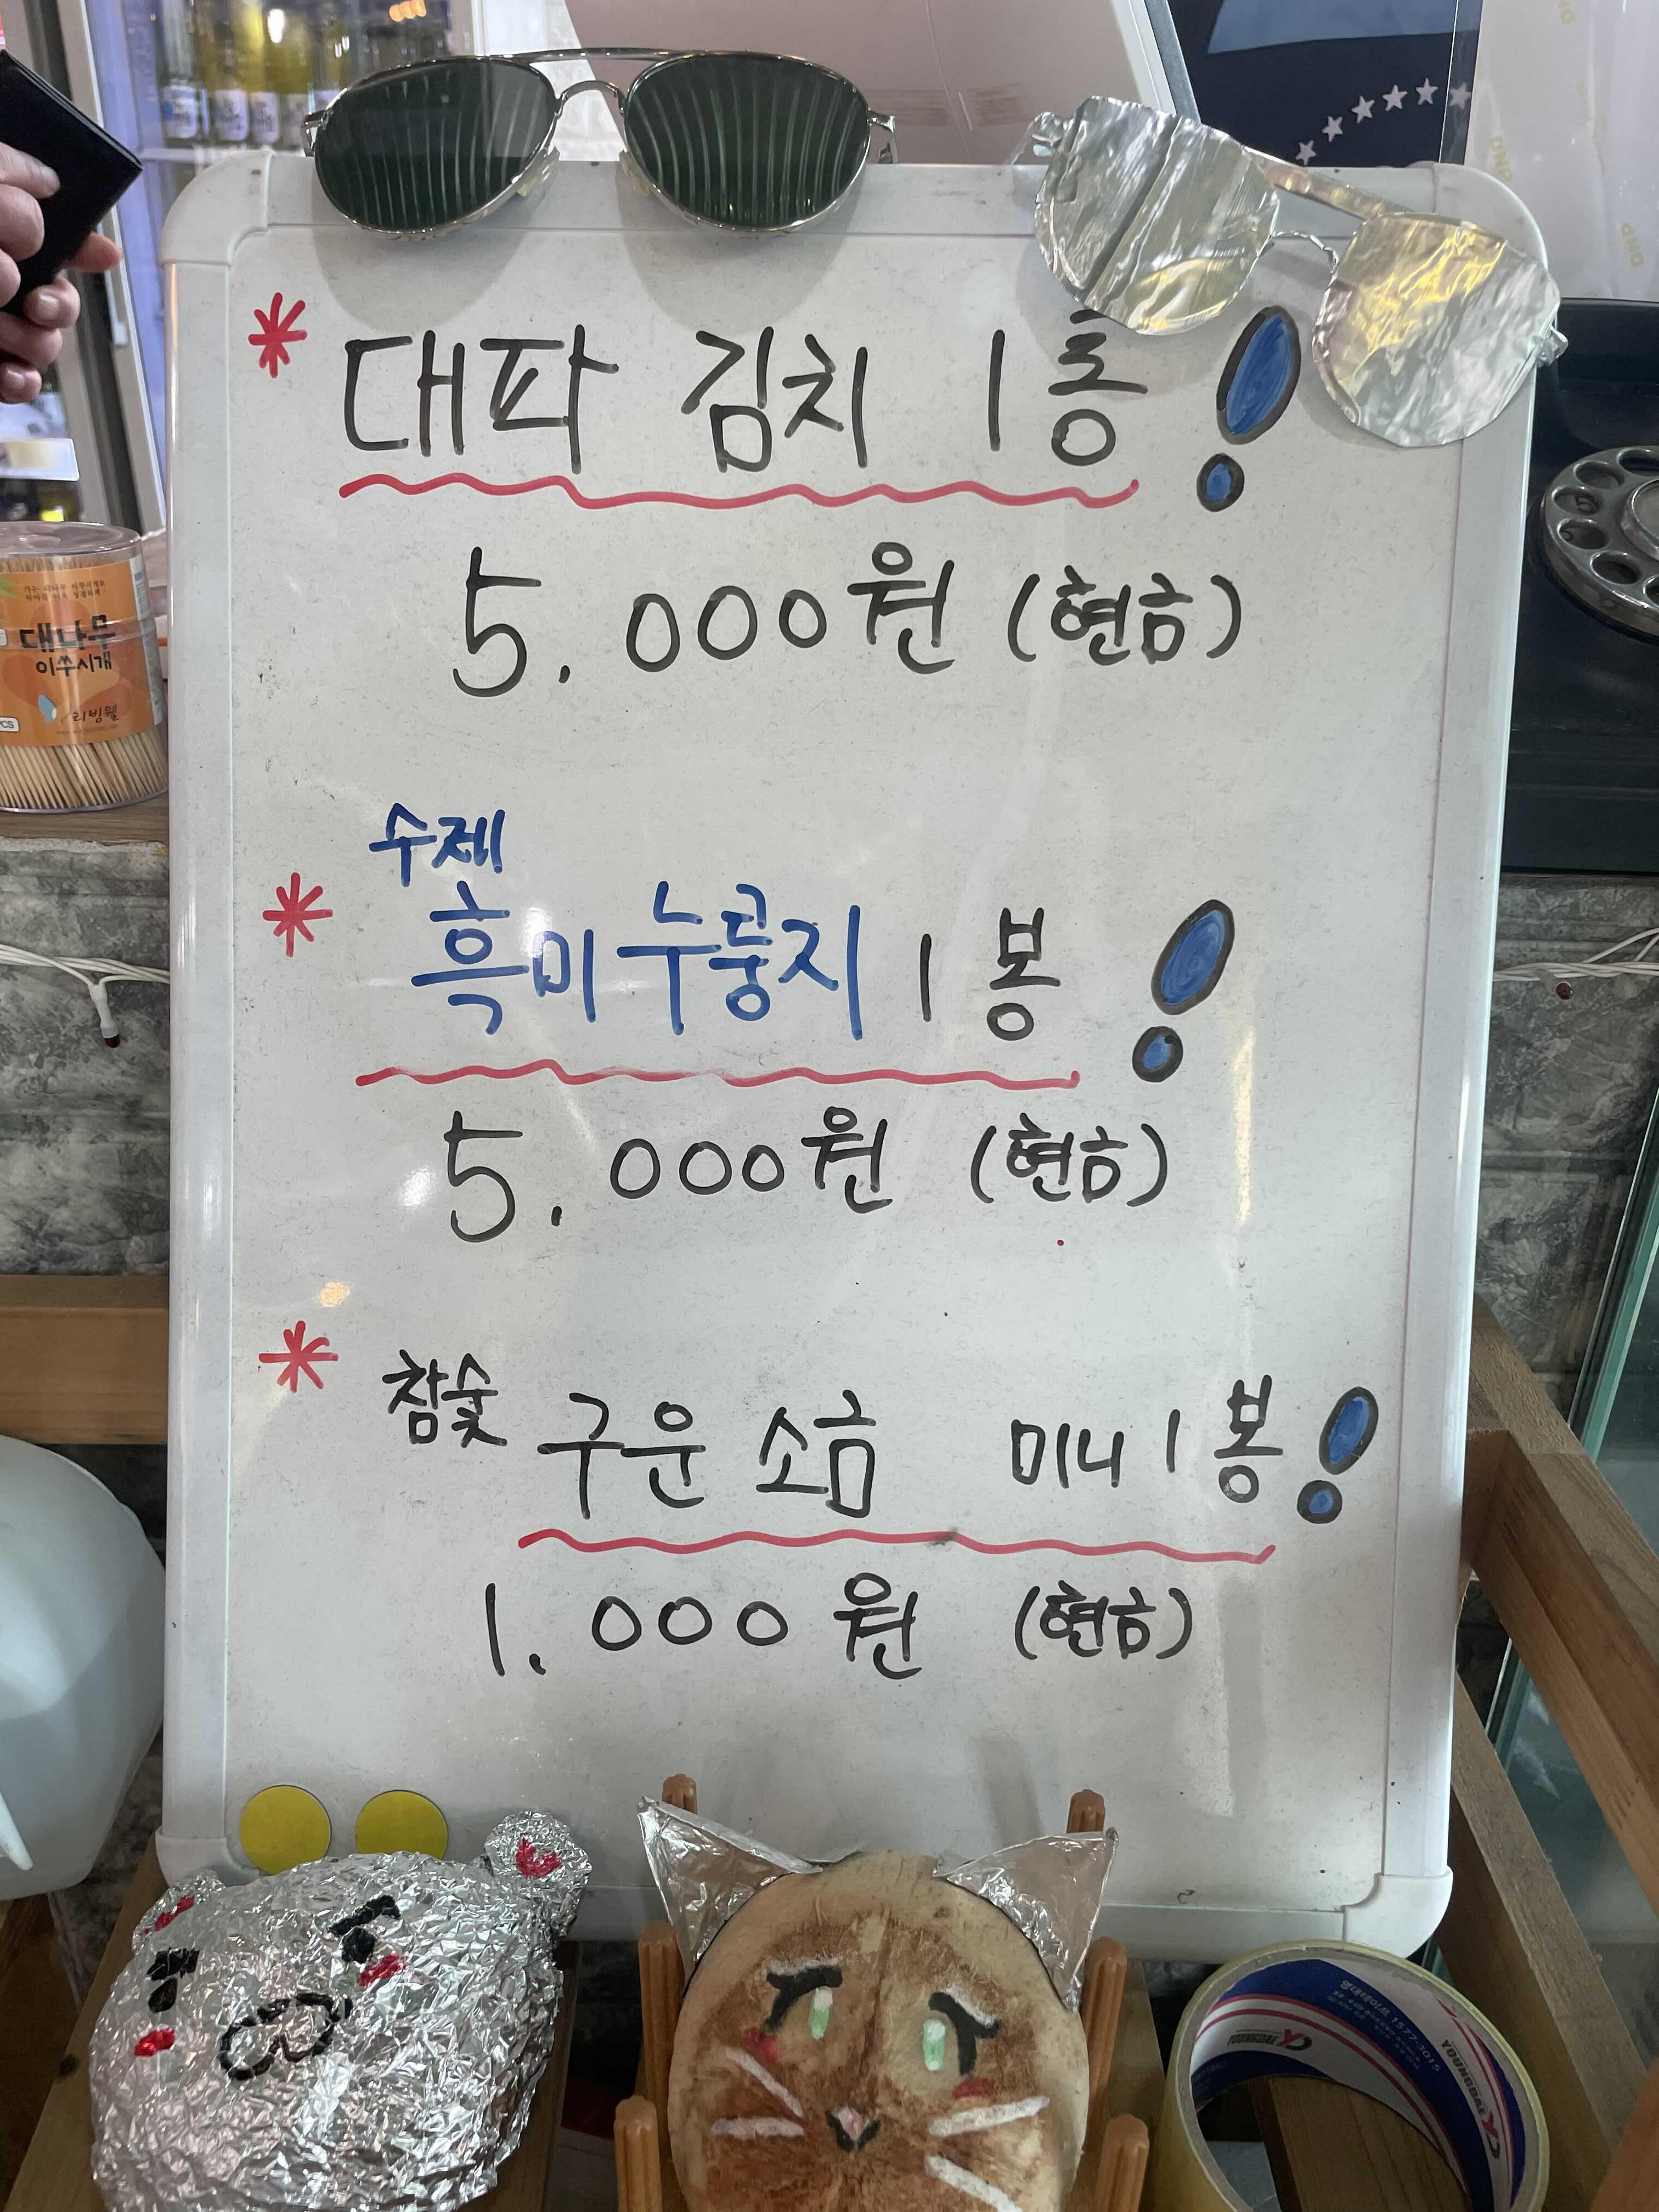 * 대파 김치 1통!
5.000원 (현금)
수제
* 흑미누룽지 1봉!
5.000원 (현금)
* 참숯 구운 소금 미니 1봉!
1.000원 (현금)
대나무
이쑤시개
리빙웰
DNP
DNP
YOUNGDAE
YOUNGDAE
1577-3015